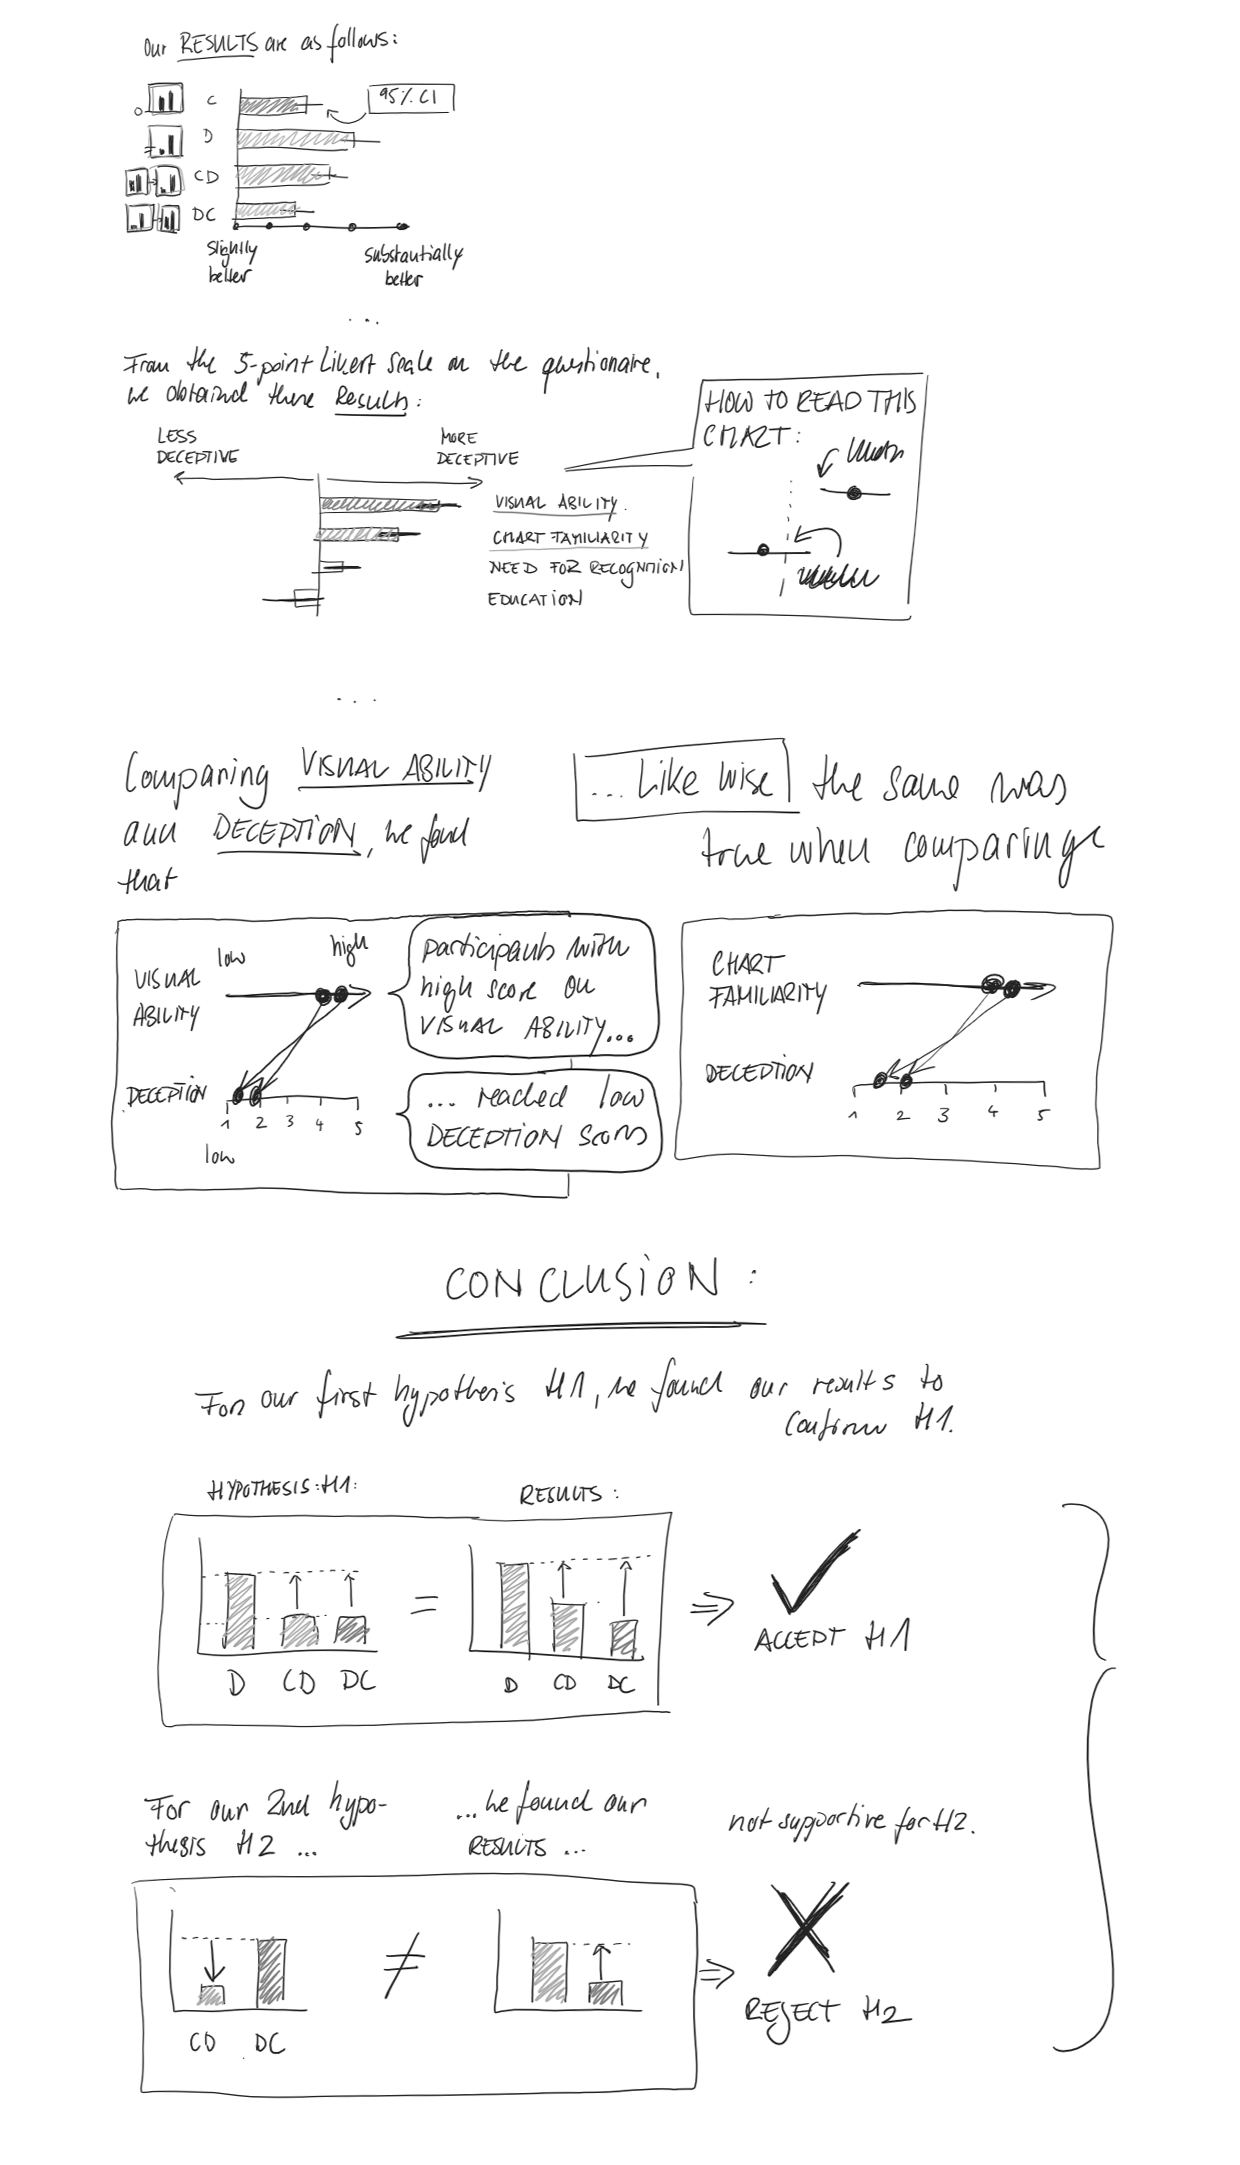 Our RESULTS are as follows:
C
95% CI
D
CD
DC
slightly
better
substantially
better
...
From the 5-point Likert Scale on the questionaire,
we obtained these Results:
LESS
DECEPTIVE
MORE
DECEPTIVE
VISUAL ABILITY
CHART FAMILIARITY
NEED FOR RECOGNITION
EDUCATION
HOW TO READ THIS
CHART:
...
Comparing VISUAL ABILITY
and DECEPTION, we found
that
... Like wise the same was
true when comparing
VISUAL
ABILITY
low
high
participants with
high score on
VISUAL ABILITY...
DECEPTION
1 2 3 4 5
low
... reached low
DECEPTION scores
CHART
FAMILIARITY
DECEPTION
1 2 3 4 5
CONCLUSION:
For our first hypothesis H1, we found our results to
confirm H1.
HYPOTHESIS: H1:
RESULTS:
=
⇒
D CD DC
D CD DC
ACCEPT H1
For our 2nd hypo-
thesis H2 ...
...we found our
RESULTS ...
not supportive for H2.
≠
⇒
CD DC
REJECT H2